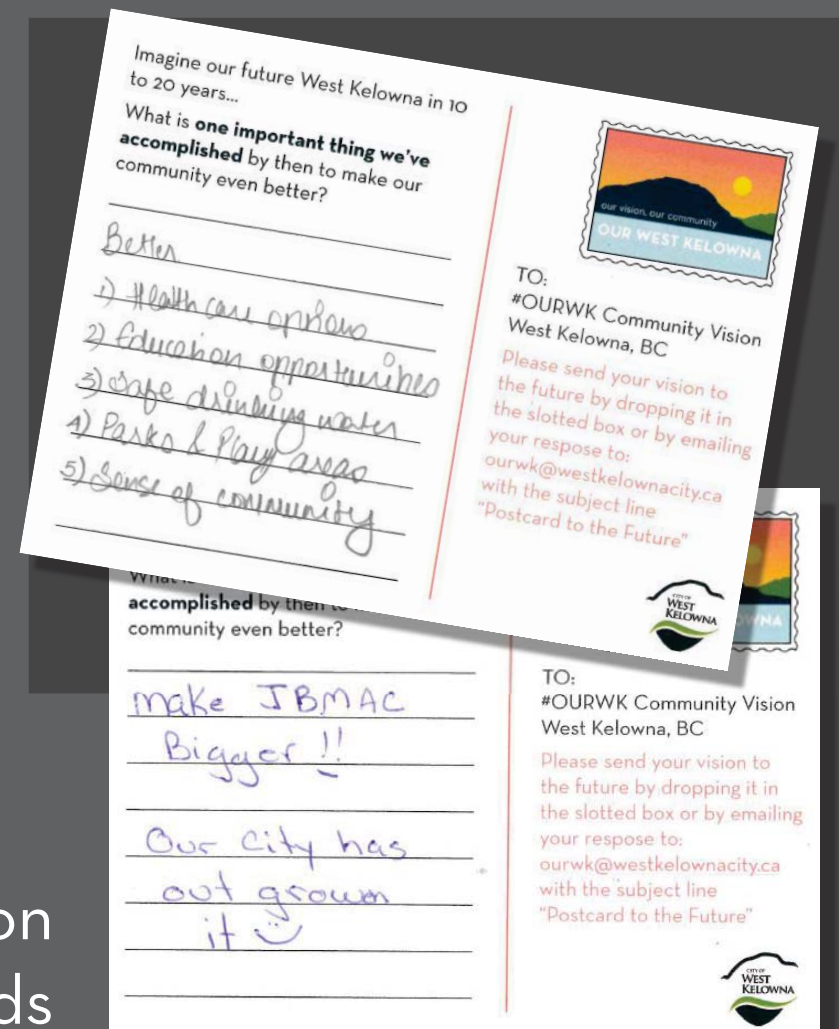 Imagine our future West Kelowna in 10
to 20 years...
What is one important thing we've
accomplished by then to make our
community even better?
Better
1) Health care options
2) Education opportunities
3) Safe drinking water
4) Parks & Play areas
5) Sense of community
our vision, our community
OUR WEST KELOWNA
TO:
#OURWK Community Vision
West Kelowna, BC
Please send your vision to
the future by dropping it in
the slotted box or by emailing
your respose to:
ourwk@westkelownacity.ca
with the subject line
"Postcard to the Future"
CITY OF
WEST
KELOWNA
What
accomplished by then
community even better?
make JBMAC
Bigger !!
Our City has
out grown
it
OWNA
TO:
#OURWK Community Vision
West Kelowna, BC
Please send your vision to
the future by dropping it in
the slotted box or by emailing
your respose to:
ourwk@westkelownacity.ca
with the subject line
"Postcard to the Future"
CITY OF
WEST
KELOWNA
on
ds